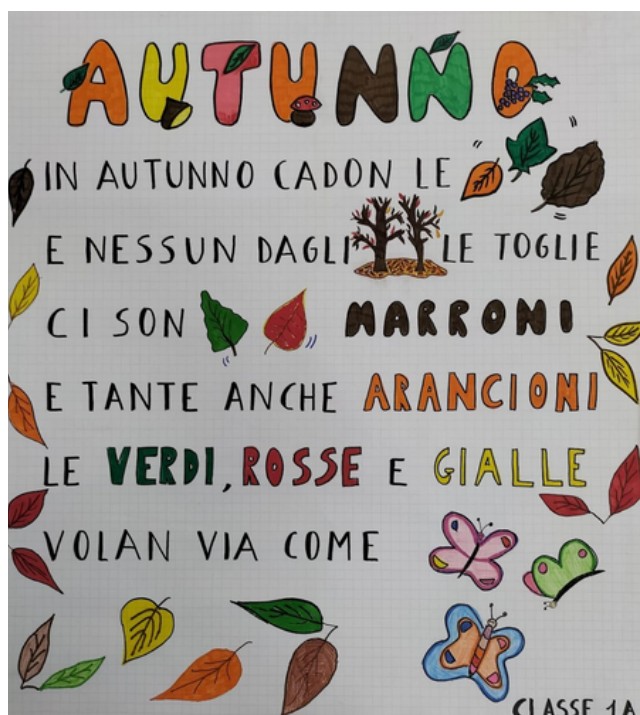 AUTUNNO
IN AUTUNNO CADON LE
E NESSUN DAGLI LE TOGLIE
CI SON MARRONI
E TANTE ANCHE ARANCIONI
LE VERDI, ROSSE E GIALLE
VOLAN VIA COME
CLASSE 1A